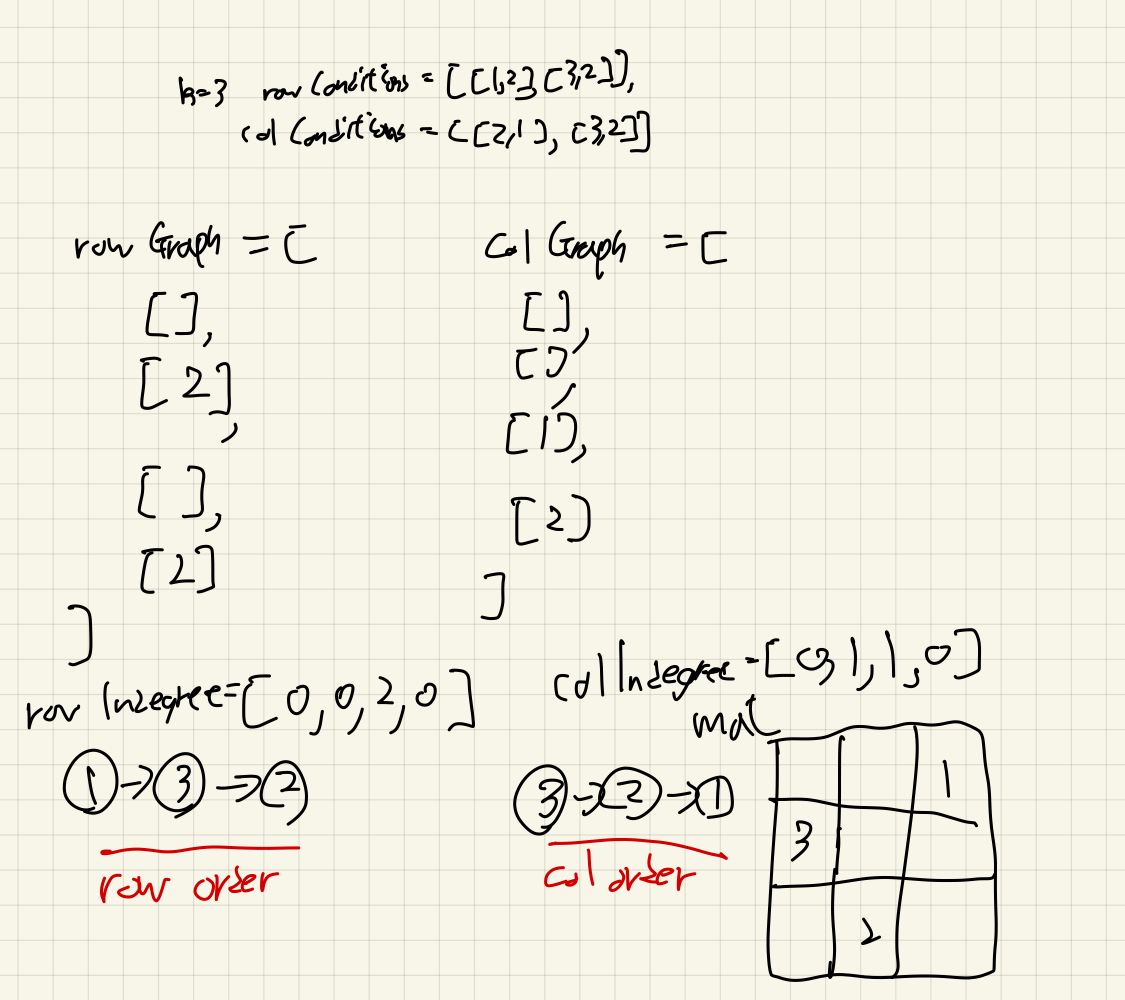 k=3 rowConditions = [[1,2],[3,2]],
colConditions = [[2,1],[3,2]]
row Graph = [
[],
[2],
[],
[2]
]
row Indegree=[0,0,2,0]
①→③→②
row order
col Graph = [
[],
[],
[1],
[2]
]
col Indegree=[0,1,1,0]
③→②→①
col order
mat
1
3
2